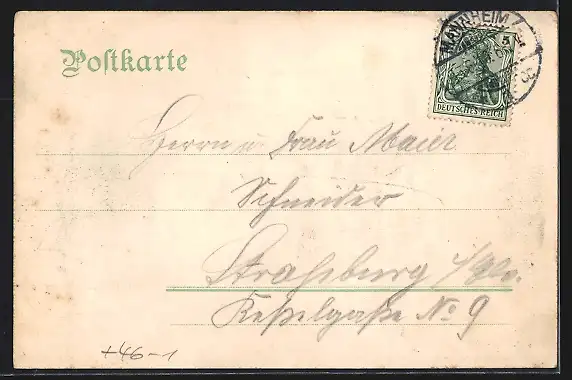 Postkarte
MANNHEIM
5
DEUTSCHES REICH
Herrn u. Frau Maier
Schneider
Straßburg i/Els.
Keßelgaße No 9
+46-1